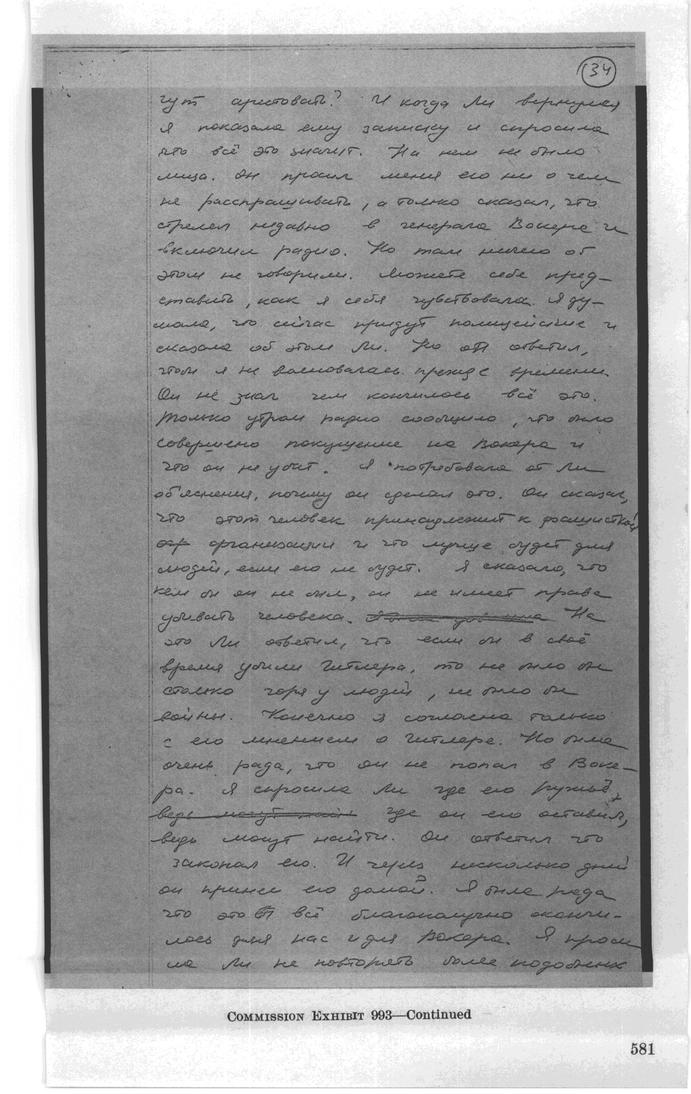 (34
гут арестовать? И когда Ли вернулся
я показала ему записку и спросила
что всё это значит. На нем не было
лица. Он просил меня его ни о чем
не расспрашивать, а только сказал, что
стрелял недавно в генерала Вокера и
включил радио. Но там ничего об
этом не говорили. Можете себе пред-
ставить, как я себя чувствовала. Я ду-
мала, что сейчас придут полицейские и
сказала об этом Ли. Но он ответил,
чтоб я не волновалась прежде времени.
Он не знал чем кончилось всё это.
Только утром радио сообщило, что было
совершено покушение на Вокера и
что он не убит. Я потребовала от Ли
объяснения, почему он сделал это. Он сказал,
что этот человек принадлежит к фашисткой
организации и что лучше будет для
людей, если его не будет. Я сказала, что
кем бы он не был, он не имеет права
убивать человека. На
это Ли ответил, что если бы в своё
время убили Гитлера, то не было бы
столько горя у людей, не было бы
войны. Конечно я согласна только
с его мнением о Гитлере. Но была
очень рада, что он не попал в Воке-
ра. Я спросила Ли где его ружьё,
ведь могут найти где он его оставил,
ведь могут найти. Он ответил что
закопал его. И через несколько дней
он принес его домой. Я была рада
что это всё благополучно окончи-
лось для нас и для Вокера. Я проси
ла Ли не повторять более подобных
COMMISSION EXHIBIT 993—Continued
581